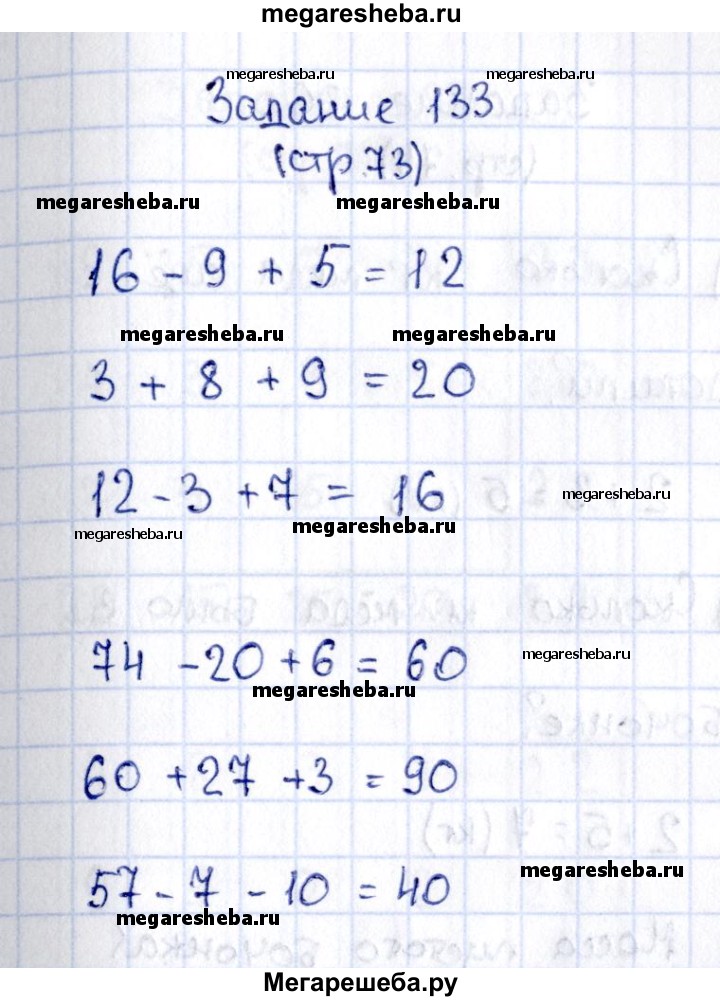 megaresheba.ru
megaresheba.ru megaresheba.ru
Задание 133
(стр.73)
megaresheba.ru megaresheba.ru
16 - 9 + 5 = 12
megaresheba.ru megaresheba.ru
3 + 8 + 9 = 20
12 - 3 + 7 = 16
megaresheba.ru
megaresheba.ru
megaresheba.ru
74 - 20 + 6 = 60
megaresheba.ru
megaresheba.ru
60 + 27 + 3 = 90
57 - 7 - 10 = 40
megaresheba.ru
megaresheba.ru
Мегарешеба.ру